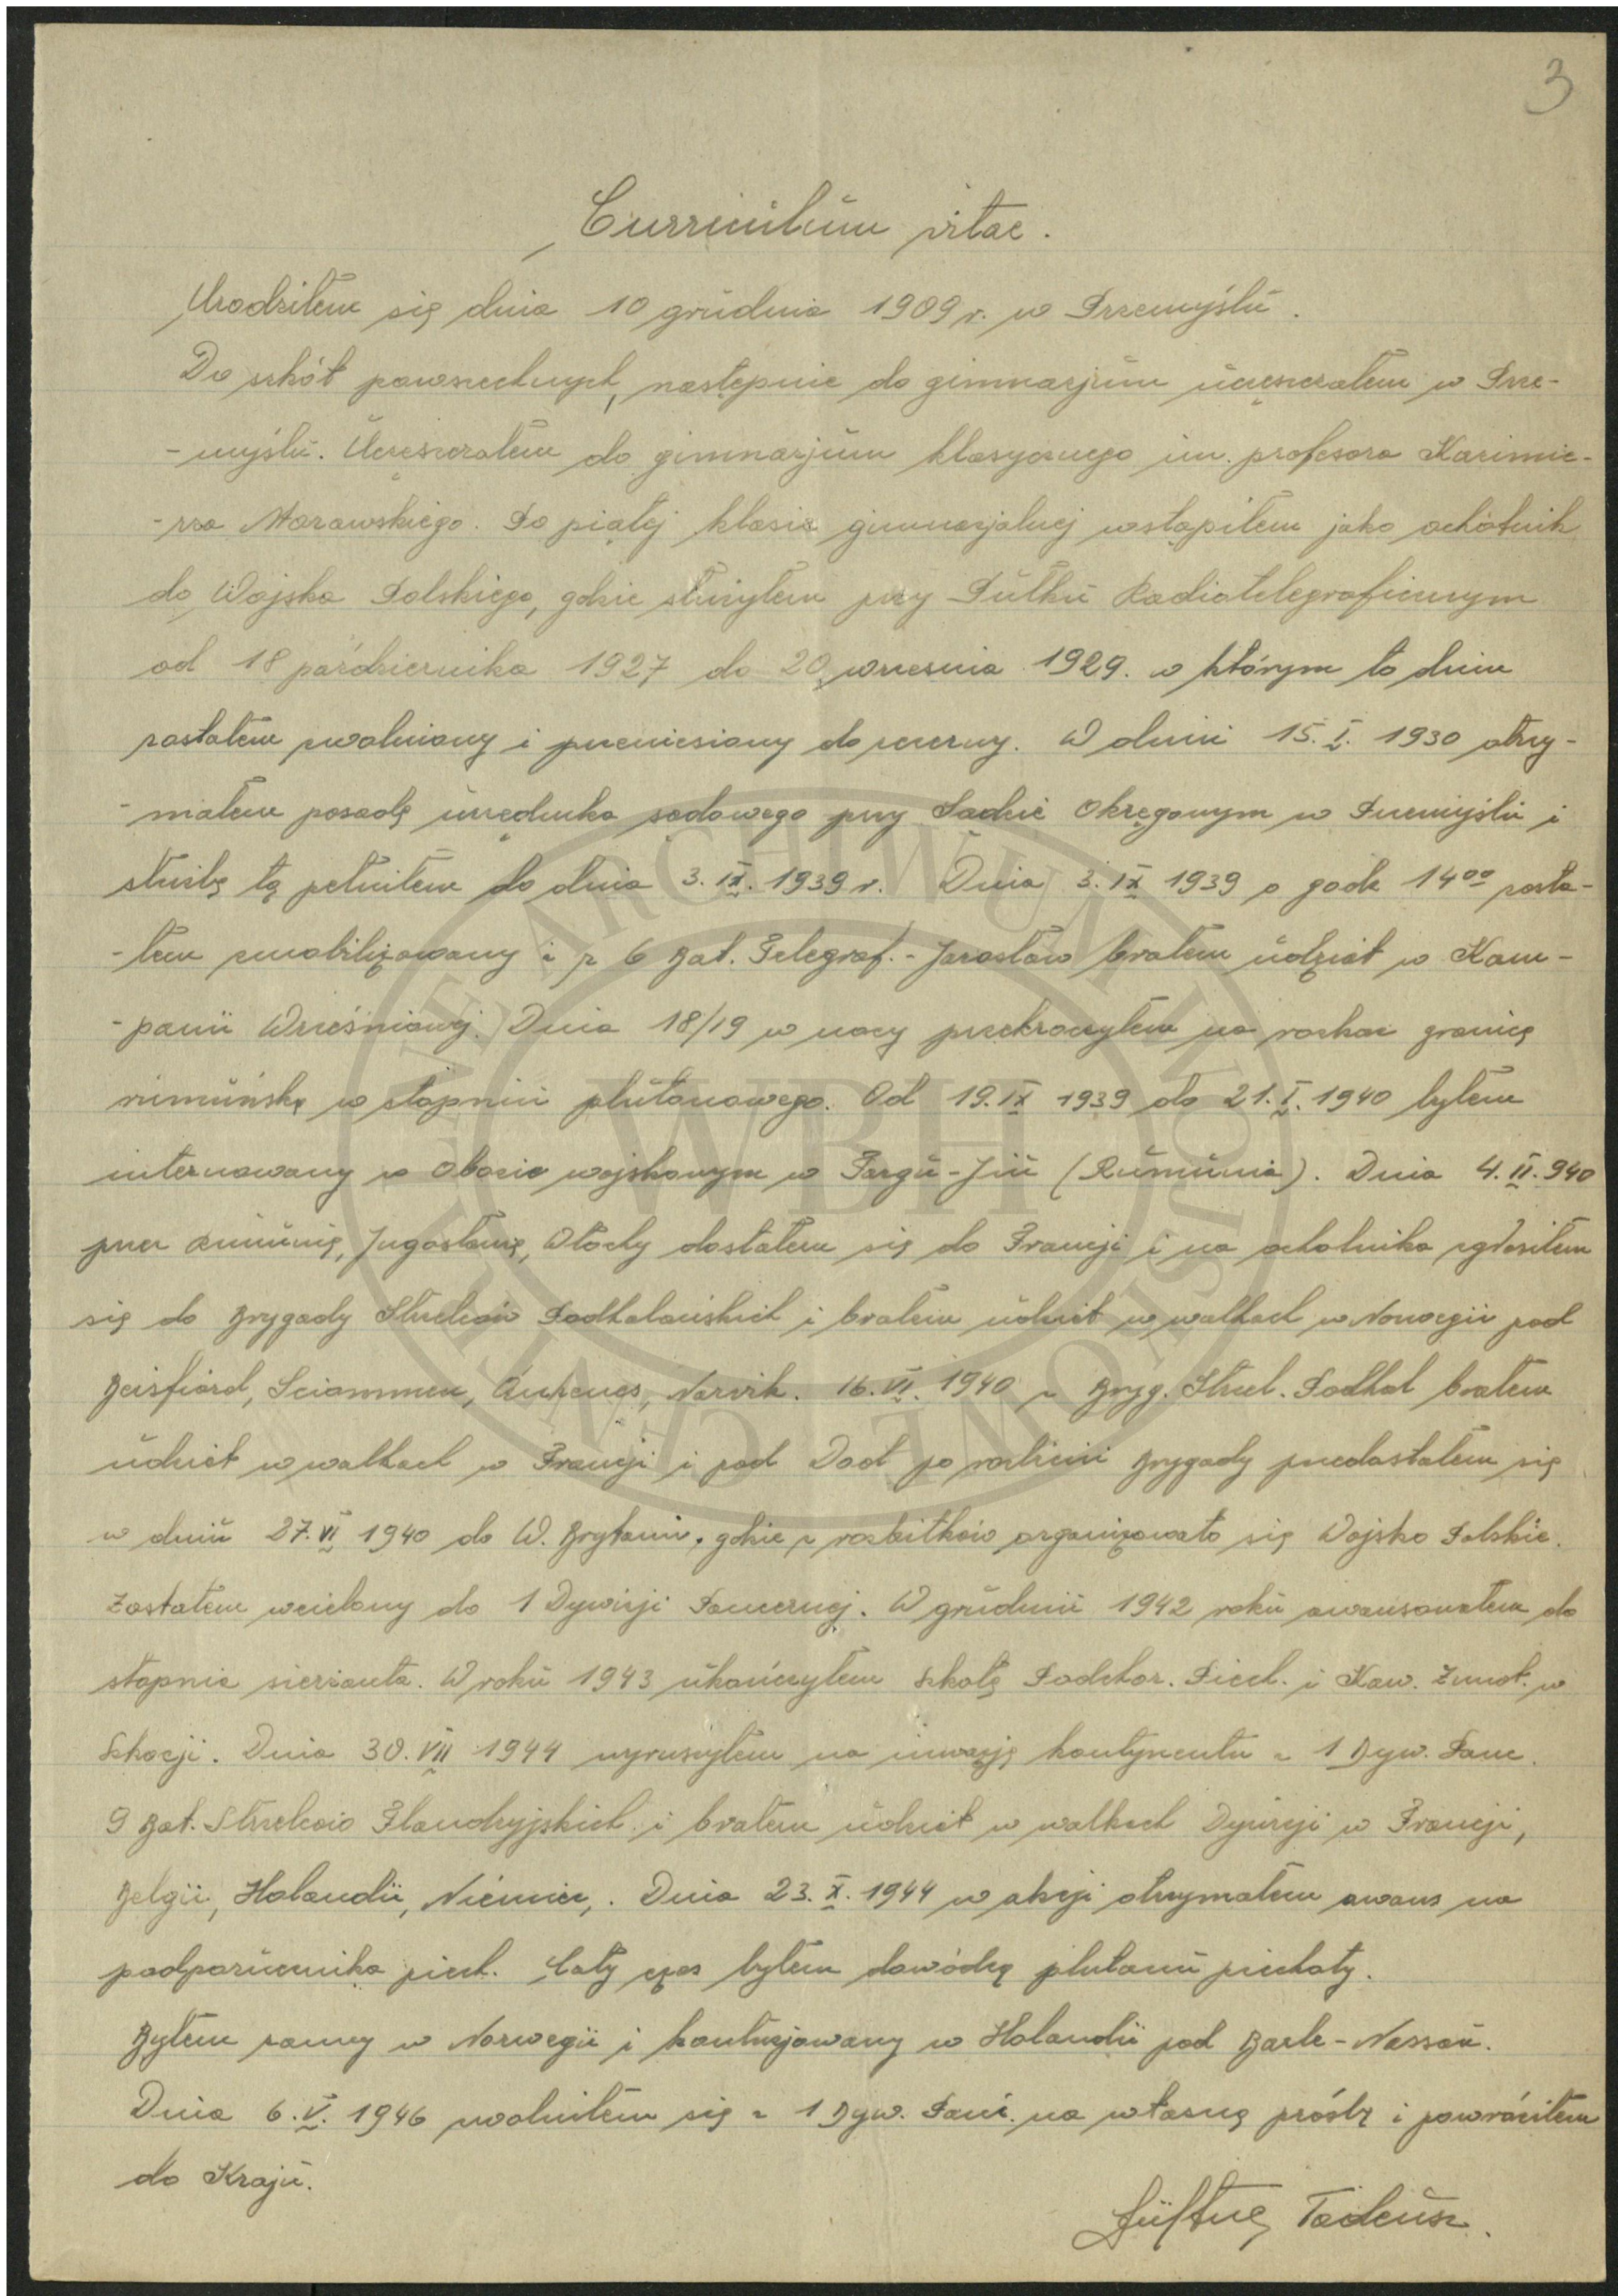 3
Curriculum vitae.
Urodziłem się dnia 10 grudnia 1909 r. w Przemyślu.
Do szkół powszechnych, następnie do gimnazjum uczęszczałem w Prze-
-myślu. Uczęszczałem do gimnazjum klasycznego im. profesora Kazimie-
-rza Morawskiego. Po piątej klasie gimnazjalnej wstąpiłem jako ochotnik
do Wojska Polskiego, gdzie służyłem przy Pułku Radiotelegraficznym
od 18 października 1927 do 20 września 1929. w którym to dniu
zostałem zwolniony i przeniesiony do rezerwy. W dniu 15.I. 1930 otrzy-
-małem posadę urzędnika sądowego przy Sądzie Okręgowym w Przemyślu i
służbę tą pełniłem do dnia 3.IX.1939 r. Dnia 3.IX 1939 o godz 14⁰⁰ zosta-
-łem zmobilizowany i z 6 Bat. Telegraf.-Jarosław brałem udział w Kam-
-panii Wrześniowej. Dnia 18/19 w nocy przekroczyłem na rozkaz granicę
rumuńską w stopniu plutonowego. Od 19.IX 1939 do 21.I.1940 byłem
internowany w Obozie wojskowym w Targu-Jiu (Rumunia). Dnia 4.II.940
przez Rumunię, Jugosławię, Włochy dostałem się do Francji i na ochotnika zgłosiłem
się do Brygady Strzelców Podhalańskich i brałem udział w walkach w Norwegii pod
Beisfiord, Sciammen, Ankenes, Narvik. 16.VI.1940 z Bryg. Strzel. Podhal brałem
udział w walkach w Francji i pod Dool po rozbiciu Brygady przedostałem się
w dniu 27.VI 1940 do W. Brytanii, gdzie z rozbitków organizowało się Wojsko Polskie.
Zostałem wcielony do 1 Dywizji Pancernej. W grudniu 1942 roku awansowałem do
stopnia sierżanta. W roku 1943 ukończyłem Szkołę Podchor. Piech. i Kaw. Zmot. w
Szkocji. Dnia 30.VII 1944 wyruszyłem na inwazję kontynentu z 1 Dyw. Panc.
9 Bat. Strzelców Flandryjskich i brałem udział w walkach Dywizji w Francji,
Belgii, Holandii, Niemiec,. Dnia 23.X.1944 w akcji otrzymałem awans na
podporucznika piech. Cały czas byłem dowódcą plutonu piechoty.
Byłem ranny w Norwegii i kontuzjowany w Holandii pod Barle-Nassau.
Dnia 6.V.1946 zwolniłem się z 1 Dyw. Panc. na własną prośbę i powróciłem
do Kraju.
Tadeusz.
WBH